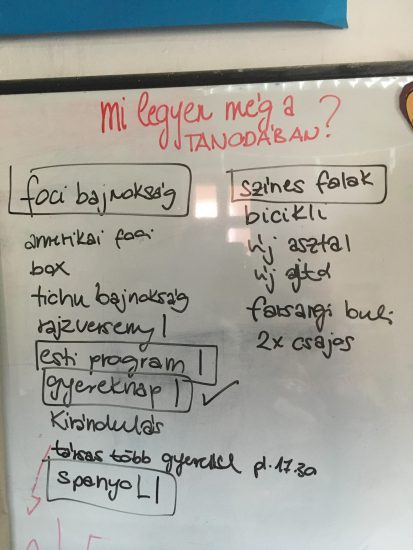 mi legyen még a
TANODÁBAN?
foci bajnokság
amerikai foci
box
tichu bajnokság
rajzverseny |
esti program |
gyereknap |
Kirándulás
társas több gyerekkel pl. 17.30
SPANYOL |
színes falak
bicikli
új asztal
új ajtó
farsangi buli
2x csajos